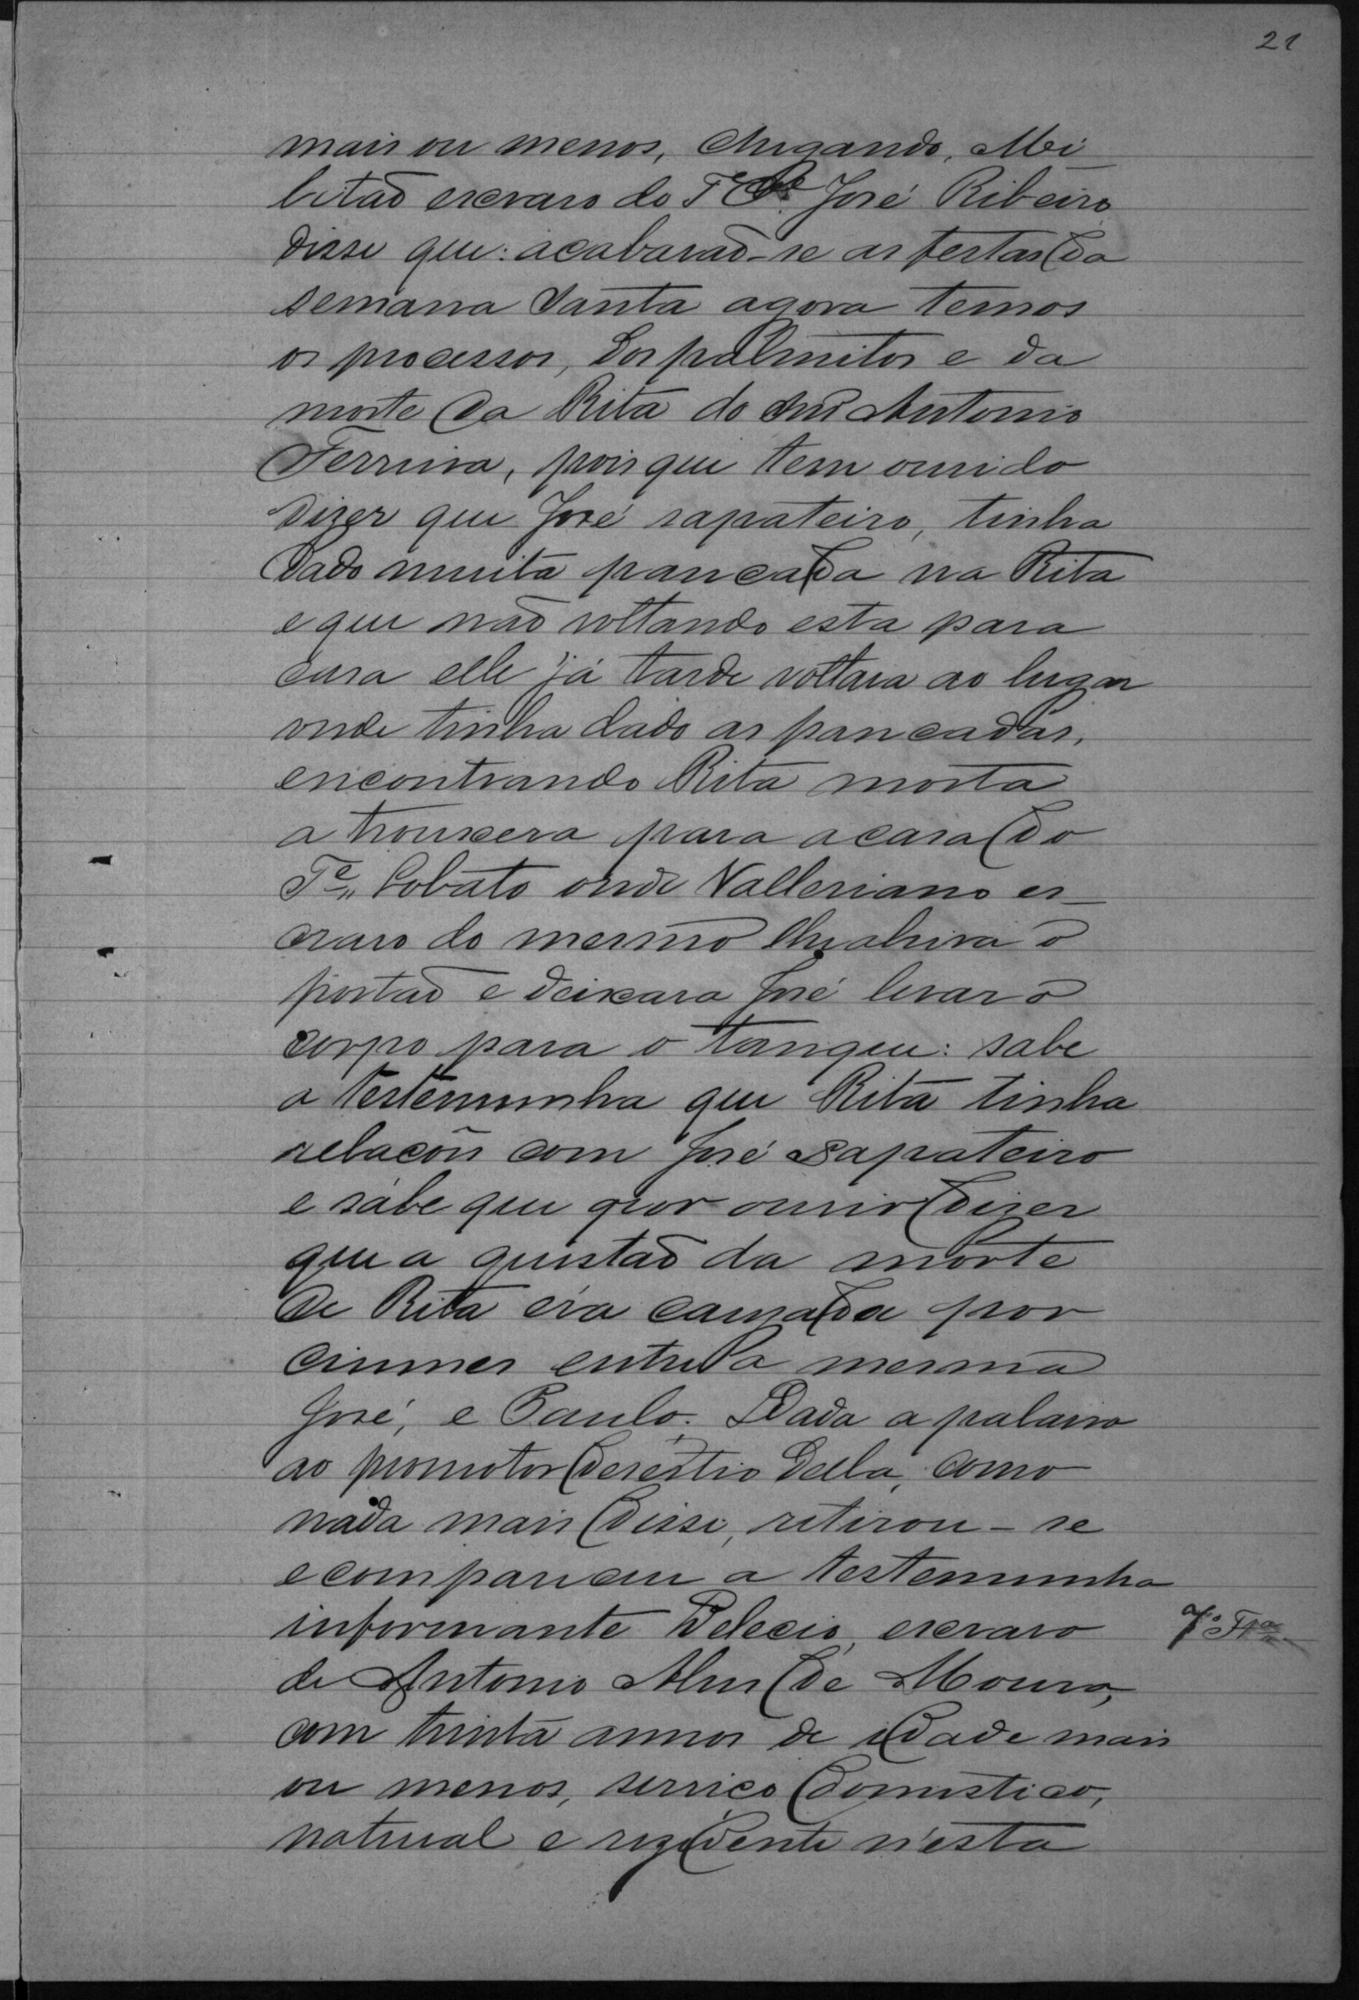 21
mais ou menos, chegando, Mei
litaõ escravo do Te Cel José Ribeiro
disse que: acabavaõ-se as festas da
semana Santa agora temos
os processos, dos palmitos e da
morte da Rita do Snr Antonio
Ferreira, pois que tem ouvido
dizer que José sapateiro, tinha
dado muita pancada na Rita
e que naõ voltando esta para
casa elle já tarde voltava ao lugar
onde tinha dado as pancadas,
encontrando Rita morta
a trouxera para a casa do
Te Lobato onde Valleriano es-
cravo do mesmo lhe abrira o
portaõ e deixara José levar o
corpo para o tanque: sabe
a testemunha que Rita tinha
relacoẽs com José Sapateiro
e sabe que por ouvir dizer
que a questaõ da morte
de Rita era causada por
ciumes entre a mesma
José, e Paulo. Dada a palavra
ao promotor desestio della, como
nada mais disse, retirou-se
e compareceu a testemunha
informante Delecio, escravo
7ª Tpa
de Antonio Alves de Moura,
com trinta annos de idade mais
ou menos, servico domestico,
natural e rezidente n'esta